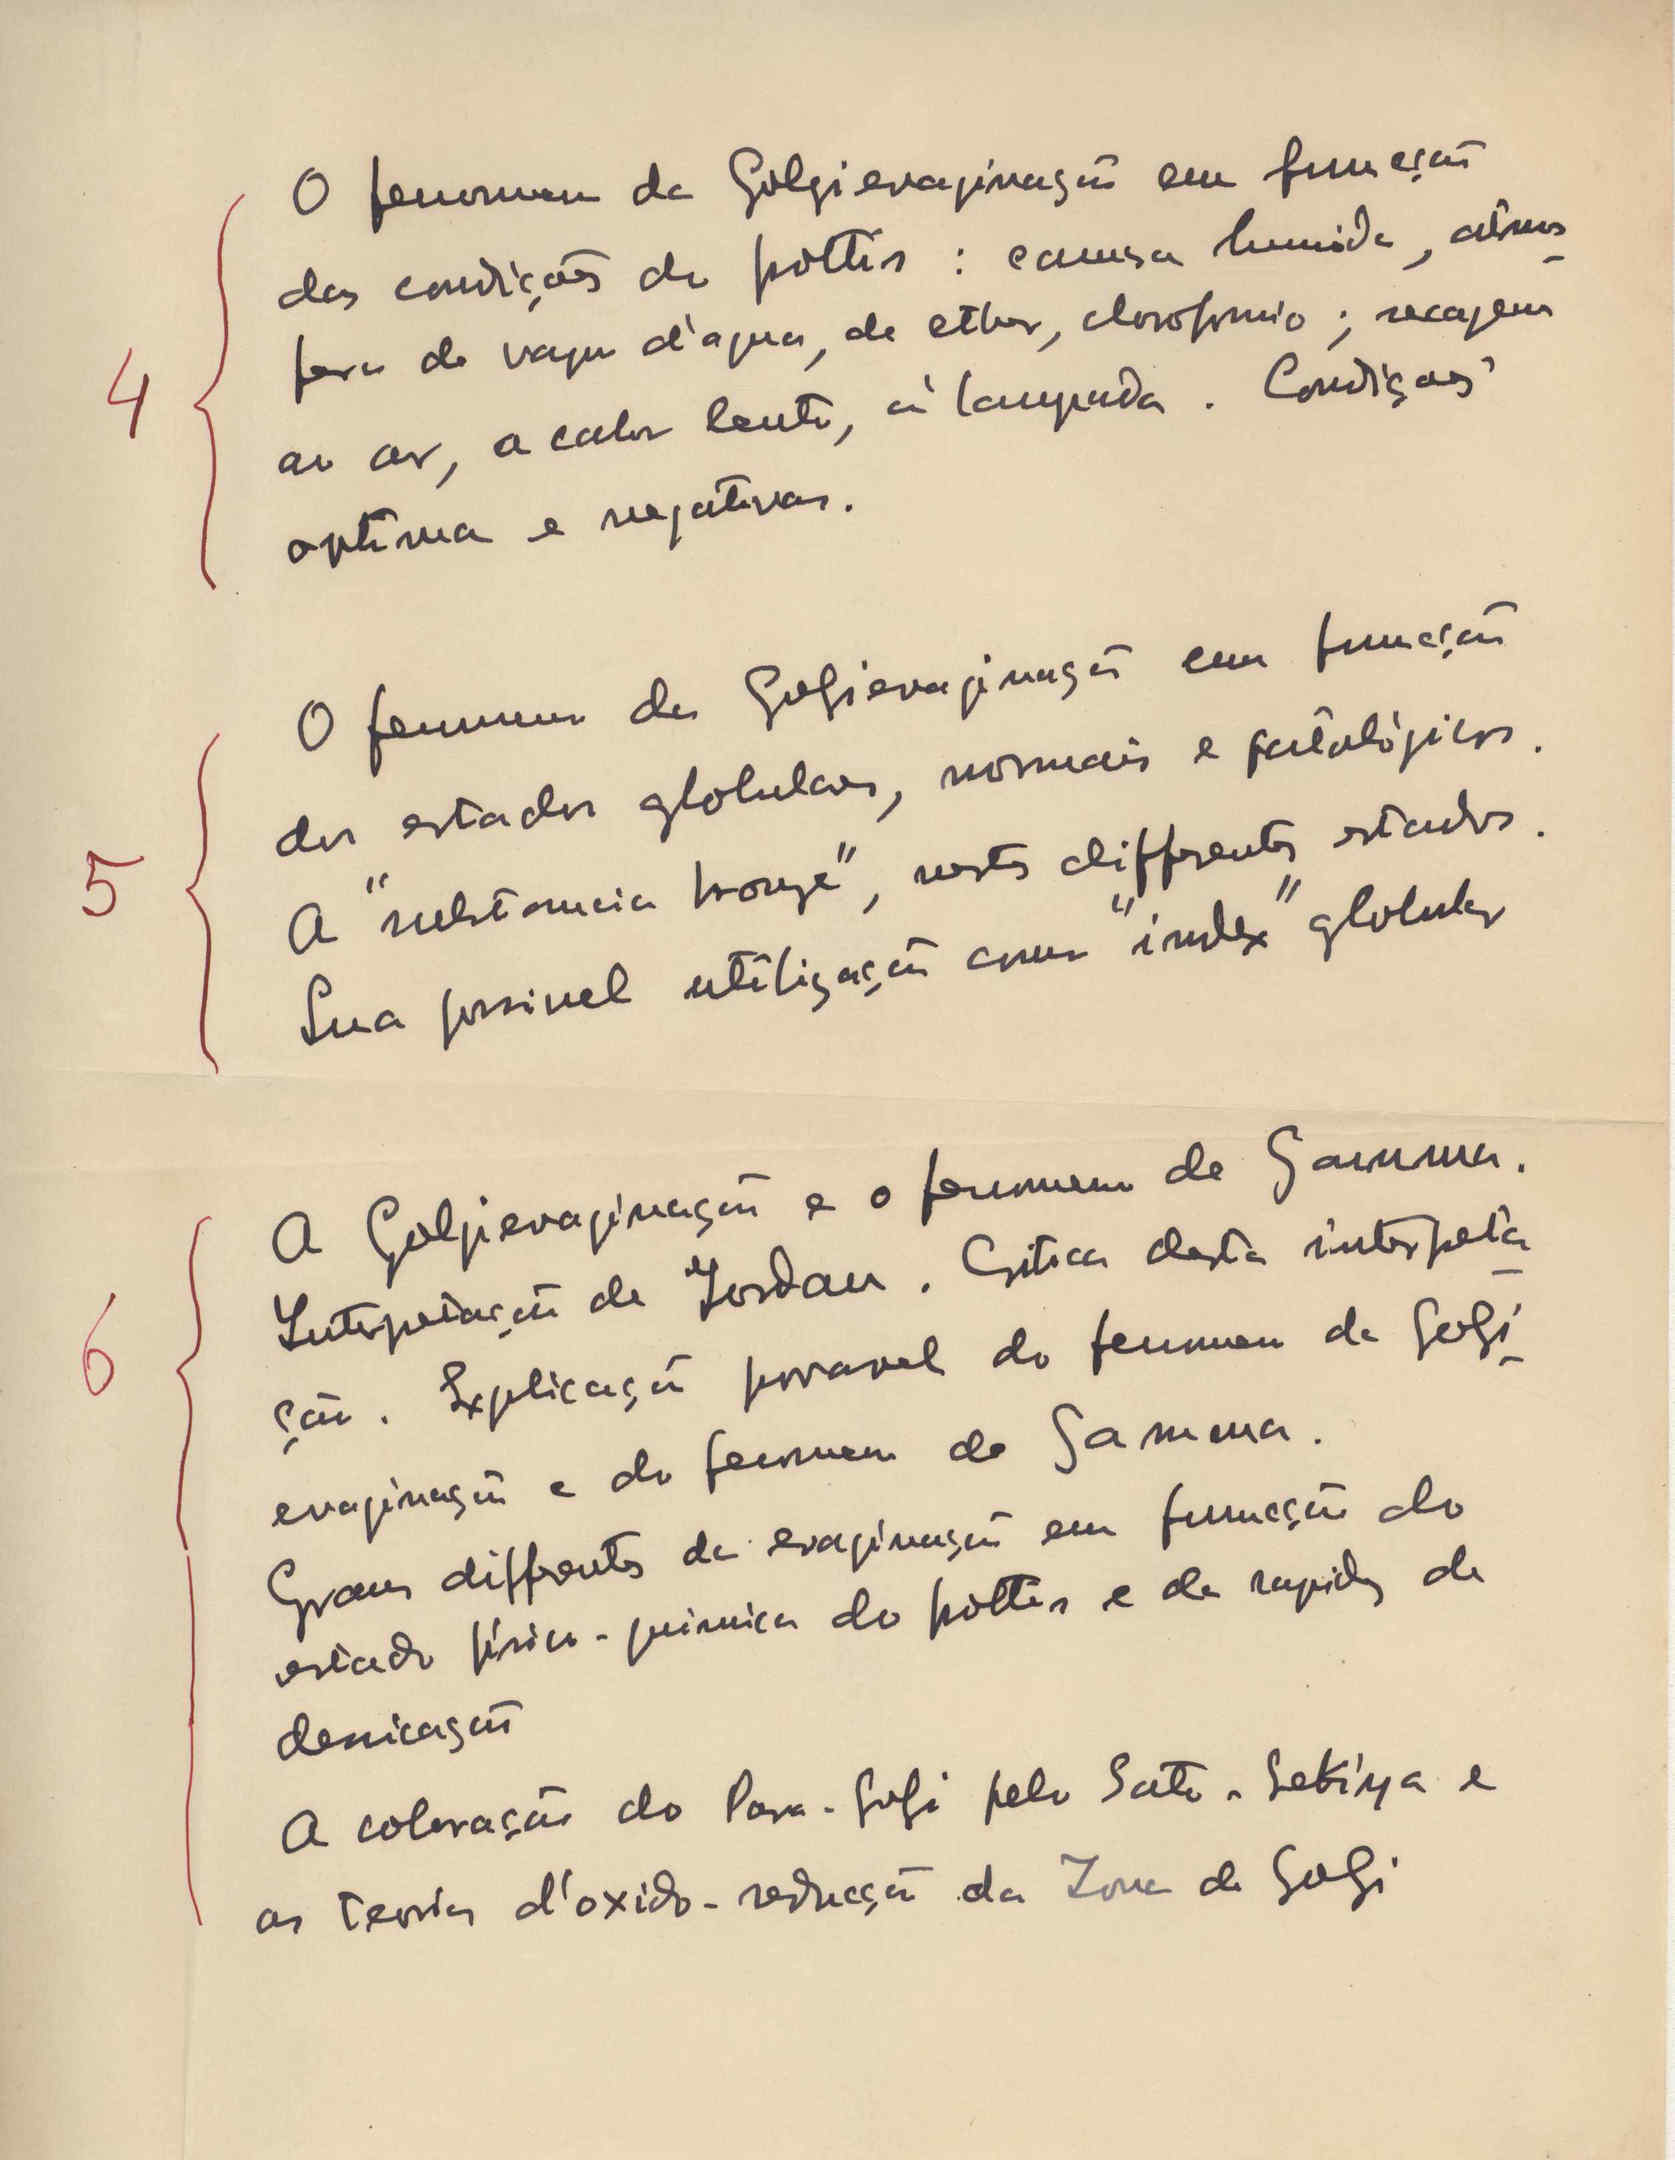 4
O fenomeno da Golgievaginação em funcção
das condições do frottis : camara humida, atmos-
fera de vapor d'agua, de ether, cloroformio ; secagem
ao ar, a calor lento, à lampada . Condições
optima e negativas.
5
O fenomeno da Golgievaginação em funcção
dos estados globulares, normais e patológicos .
A "substancia bronze", nestes differentes estados .
Sua possivel utilização como "index" globular
6
A Golgievaginação e o fenomeno de Gamma .
Interpretação de Jordan . Critica desta interpreta-
ção . Explicação provavel do fenomeno da Golgi-
evaginação e do fenomeno de Gamma .
Graus differentes da evaginação em funcção do
estado físico-quimico do frottis e da rapidez de
dessicação
A coloração do Para-Golgi pelo Sato-Sekiya e
as teorias d'oxido-reducção da Zona de Golgi